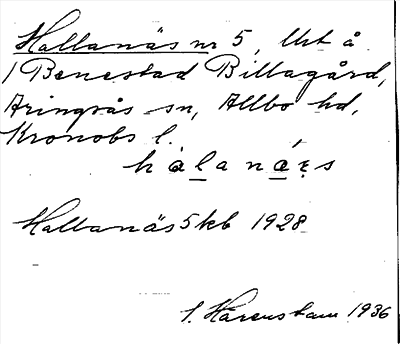 Hallanäs nr 5, Urt å
1 Benestad Billagård,
Aringsås sn, Allbo hd,
Kronobs l.
hàlanǽṛs
Hallanäs 5 kb 1928
S. Härenstam 1936